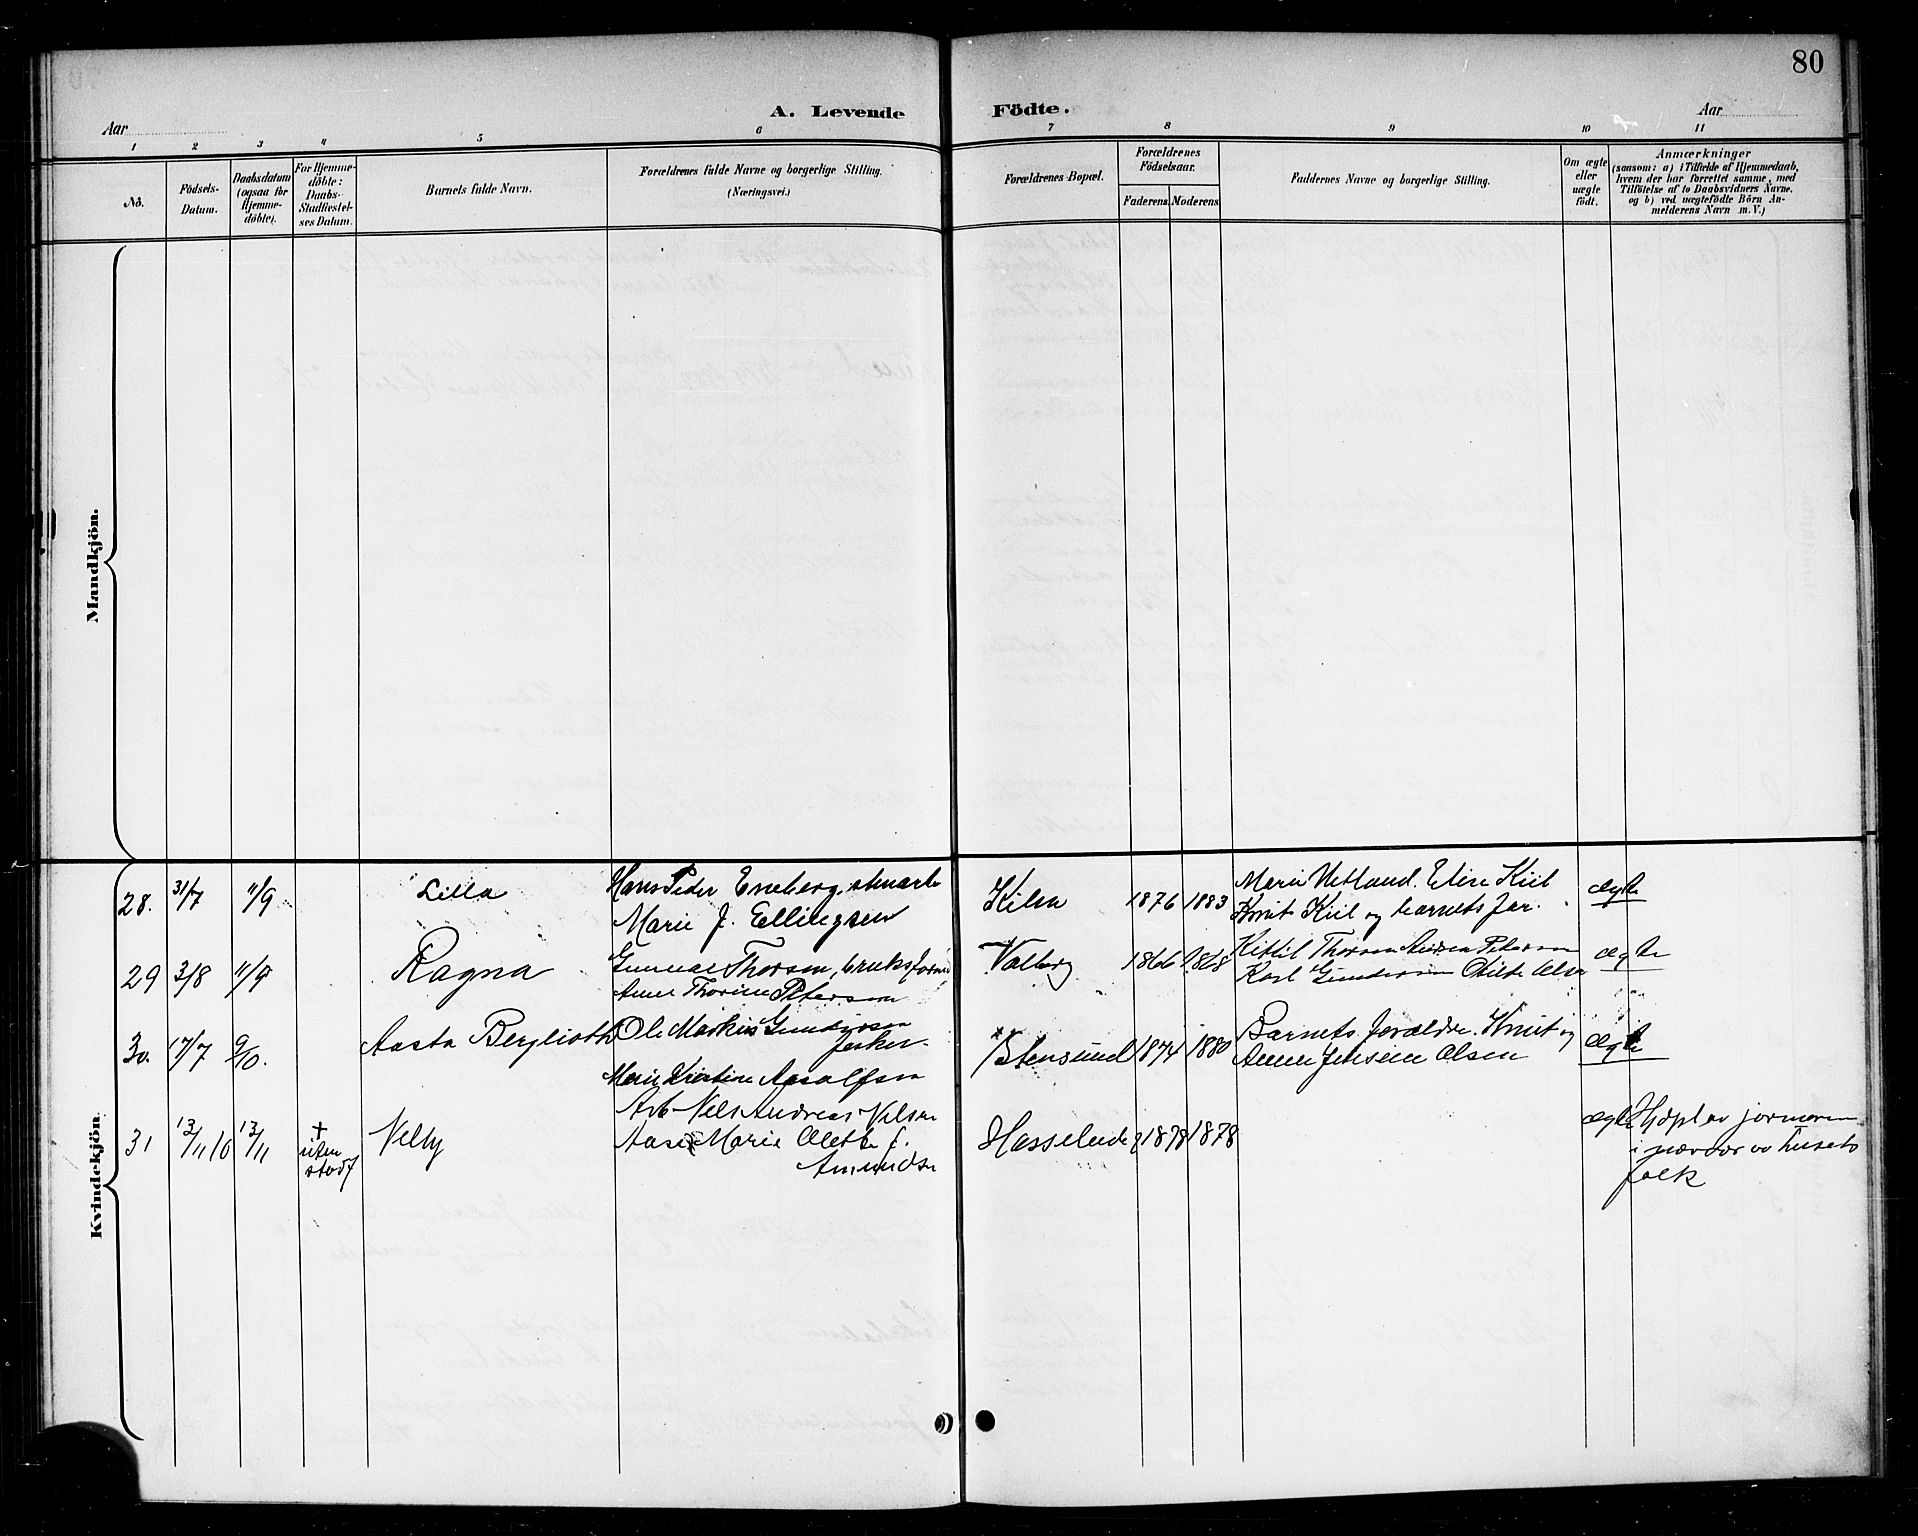 80
A. Levende Födte.
Aar
Aar
1 2 3 4 5 6 7 8 9 10 11
No.
Födsels-
Datum.
Daabsdatum
(ogsaa for
Hjemme-
döbte).
For Hjemme-
döbte:
Daabs-
Stadfæstel-
ses Datum.
Barnets fulde Navn.
Forældrenes fulde Navne og borgerlige Stilling.
(Næringsvei.)
Forældrenes Bopæl.
Forældrenes
Födselsaar.
Faderens. Moderens.
Faddernes Navne og borgerlige Stilling.
Om ægte
eller
uægte
födt.
Anmærkninger
(saasom: a) i Tilfælde af Hjemmedaab,
hvem der har forrettet samme, med
Tilföielse af to Daabsvidners Navne.
og b) ved uægtefödte Börn An-
melderens Navn m. V.)
Mandkjön.
Kvindekjön.
28. 31/7 11/9 Lilla
Hans Peder Eneberg, stenarb
Marie J. Ellingsen
Kilen 1876 1883
Marie Vetland. Elise Kiil
Knut Kiil og barnets far.
ægte
29 3/8 11/9 Ragna
Gunnar Thorsen, bruksform
Anne Thorine Petersen
Valberg 1866 1868
Kittil Thorsen Andrea Petersen
Karl Gundersen Otilie Olsen
ægte
30. 17/7 9/10. Aasta Berglioth
Ole Markus Gundersen
fisker.
Marie Kirstine Aasolfsen
Stensund 1874 1880
Barnets forældre. Knut og
Anne Jensine Olsen
ægte
31 13/11 10 13/11 + uten stadf Nelly
Arb. Nels Andreas Nilsen
Aase Marie Olette f.
Amundsen
Hasselund 1878 1878
ægte
Hjdpt av jormoren
i nærvær av husets
folk